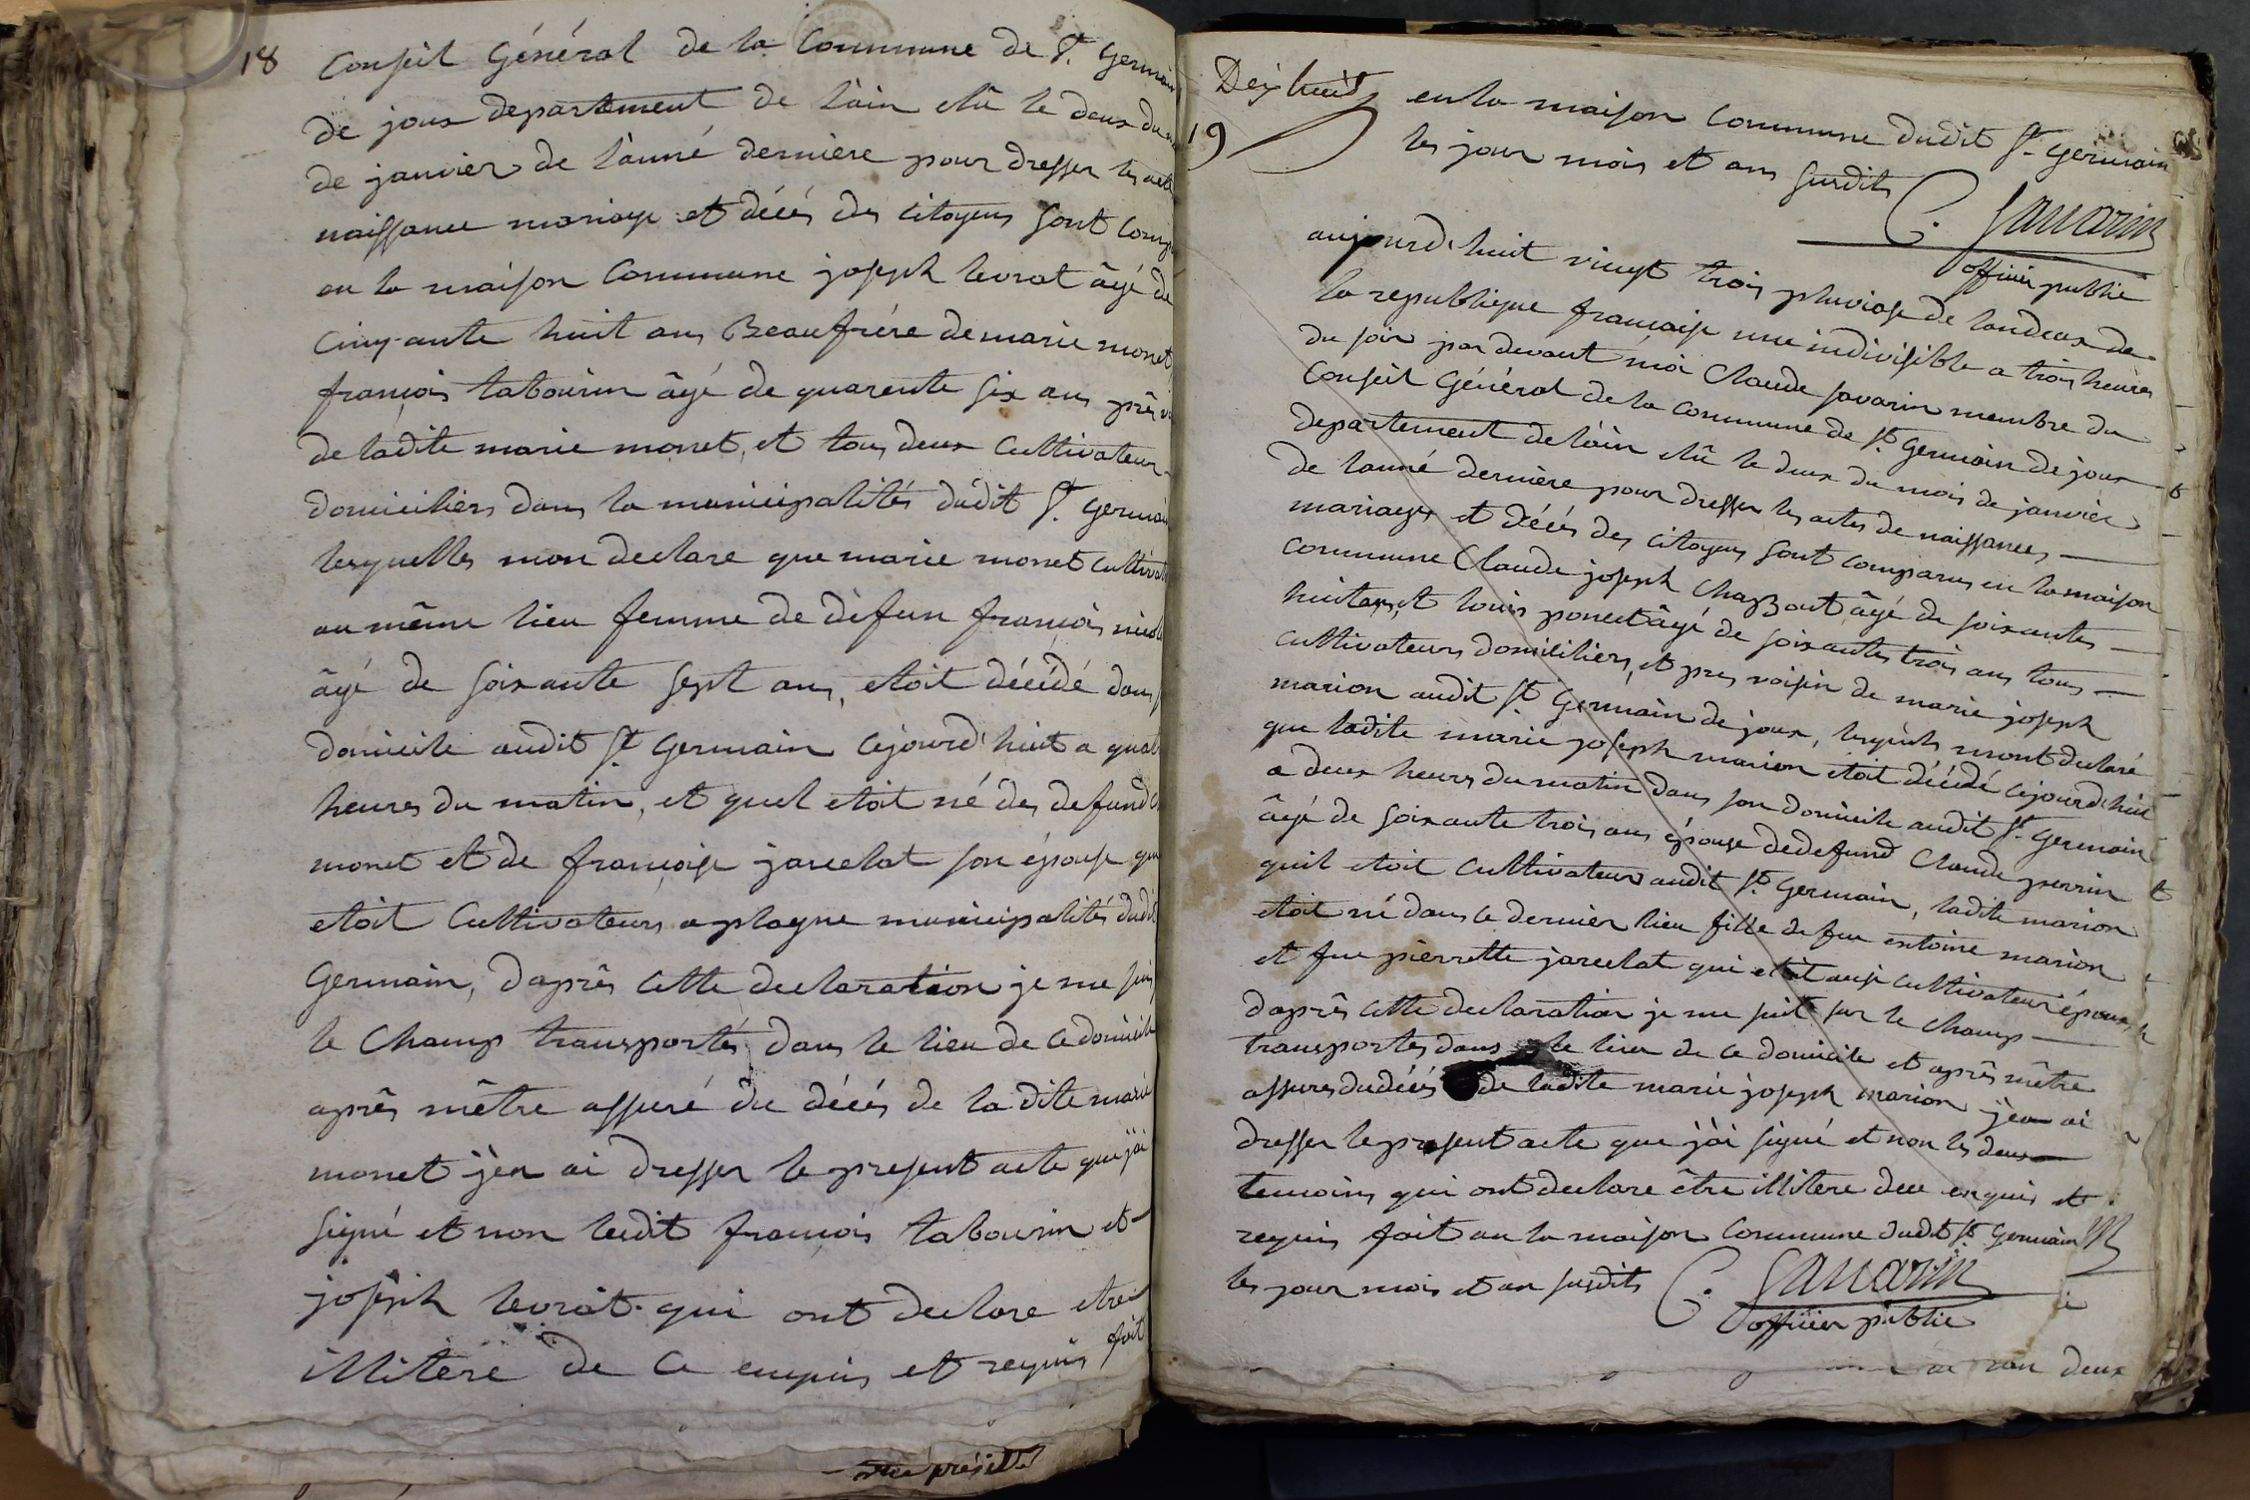 18
Conseil Général de la Commune de St. Germain
de joux departement de l'ain elû le deux du
de janvier de l'anné dernière pour dresser les acte
naissance mariage et décés des citoyens sont comp
en la maison Commune joseph levrat âgé de
cinq-ante huit ans Beaufrére de marie monet
françois tabourin âgé de quarente six ans près
de ladite marie monet, et tous deux cultivateur
domiciliers dans la municipalités dudit St. Germain
lesquelles mon declare que marie monet cultivat
au même lieu femme de défun françois
âgé de soixante sept ans, etoit décédé dans
domicile audit St Germain cejourd'huit a quat
heures du matin, et quel etoit né des defund
monet et de françoise jarcelat son épouse qu
etoit Cultivateurs a plagne municipalités dudi
Germain, d'aprês cette declaration je me suis
le Champ transportés dans le lieu de ce domicile
aprês mêtre assuré du décés de la dite marie
monet j'en ai dresser le present acte que j'ai
signé et non ledit françois tabourin et
joseph levrat qui ont declare etre
illitere de ce enquis et requis fait
Dix huit
19
en la maison Commune dudit St. Germain
les jour mois et ans susdits
C. Savarin
officier public
aujourd'huit vingt trois pluviose de landeux de
la republique françaisse une indivisible a trois heures
du soir par devant moi Claude savarin membre du
Conseil Général de la commune de St. Germain de joux
departement de l'ain elû le deux du mois de janvier
de lanné dernière pour dresser les actes de naissances,
mariages et décés des citoyens sont comparus en la maison
commune Claude joseph Chazzout âgé de soixante
huitans, et louis poncet âgé de soixante trois ans tous
cultivateurs domiciliers, et pres voisin de marie joseph
marion audit St Germain de joux, lesquels mont declaré
que ladite marie joseph marion etoit décédé cejourd'huit
a deux heures du matin dans son domicile audit St. Germain
âgé de soixante trois ans épouse dedefund Claude perrin
quil etoit cultivateurs audit St. Germain, ladite marion
etoit né dans ce dernier lieu fille de feu entoine marion
et feue pierrette jarcelat qui etoit ausi cultivateur épouse
d'aprês cette declaration je me suit sur le champ
transportes dans le lieu de ce domicile et aprês mêtre
assures dudécés de ladite marie joseph marion j'en ai
dresser le present acte que j'ai signé et non les deux
temoins qui ont declare être illitere dece enquis et
requis fait en la maison Commune dudit St Germain
les jour mois et an susdits
C. Savarin
officier public
deux